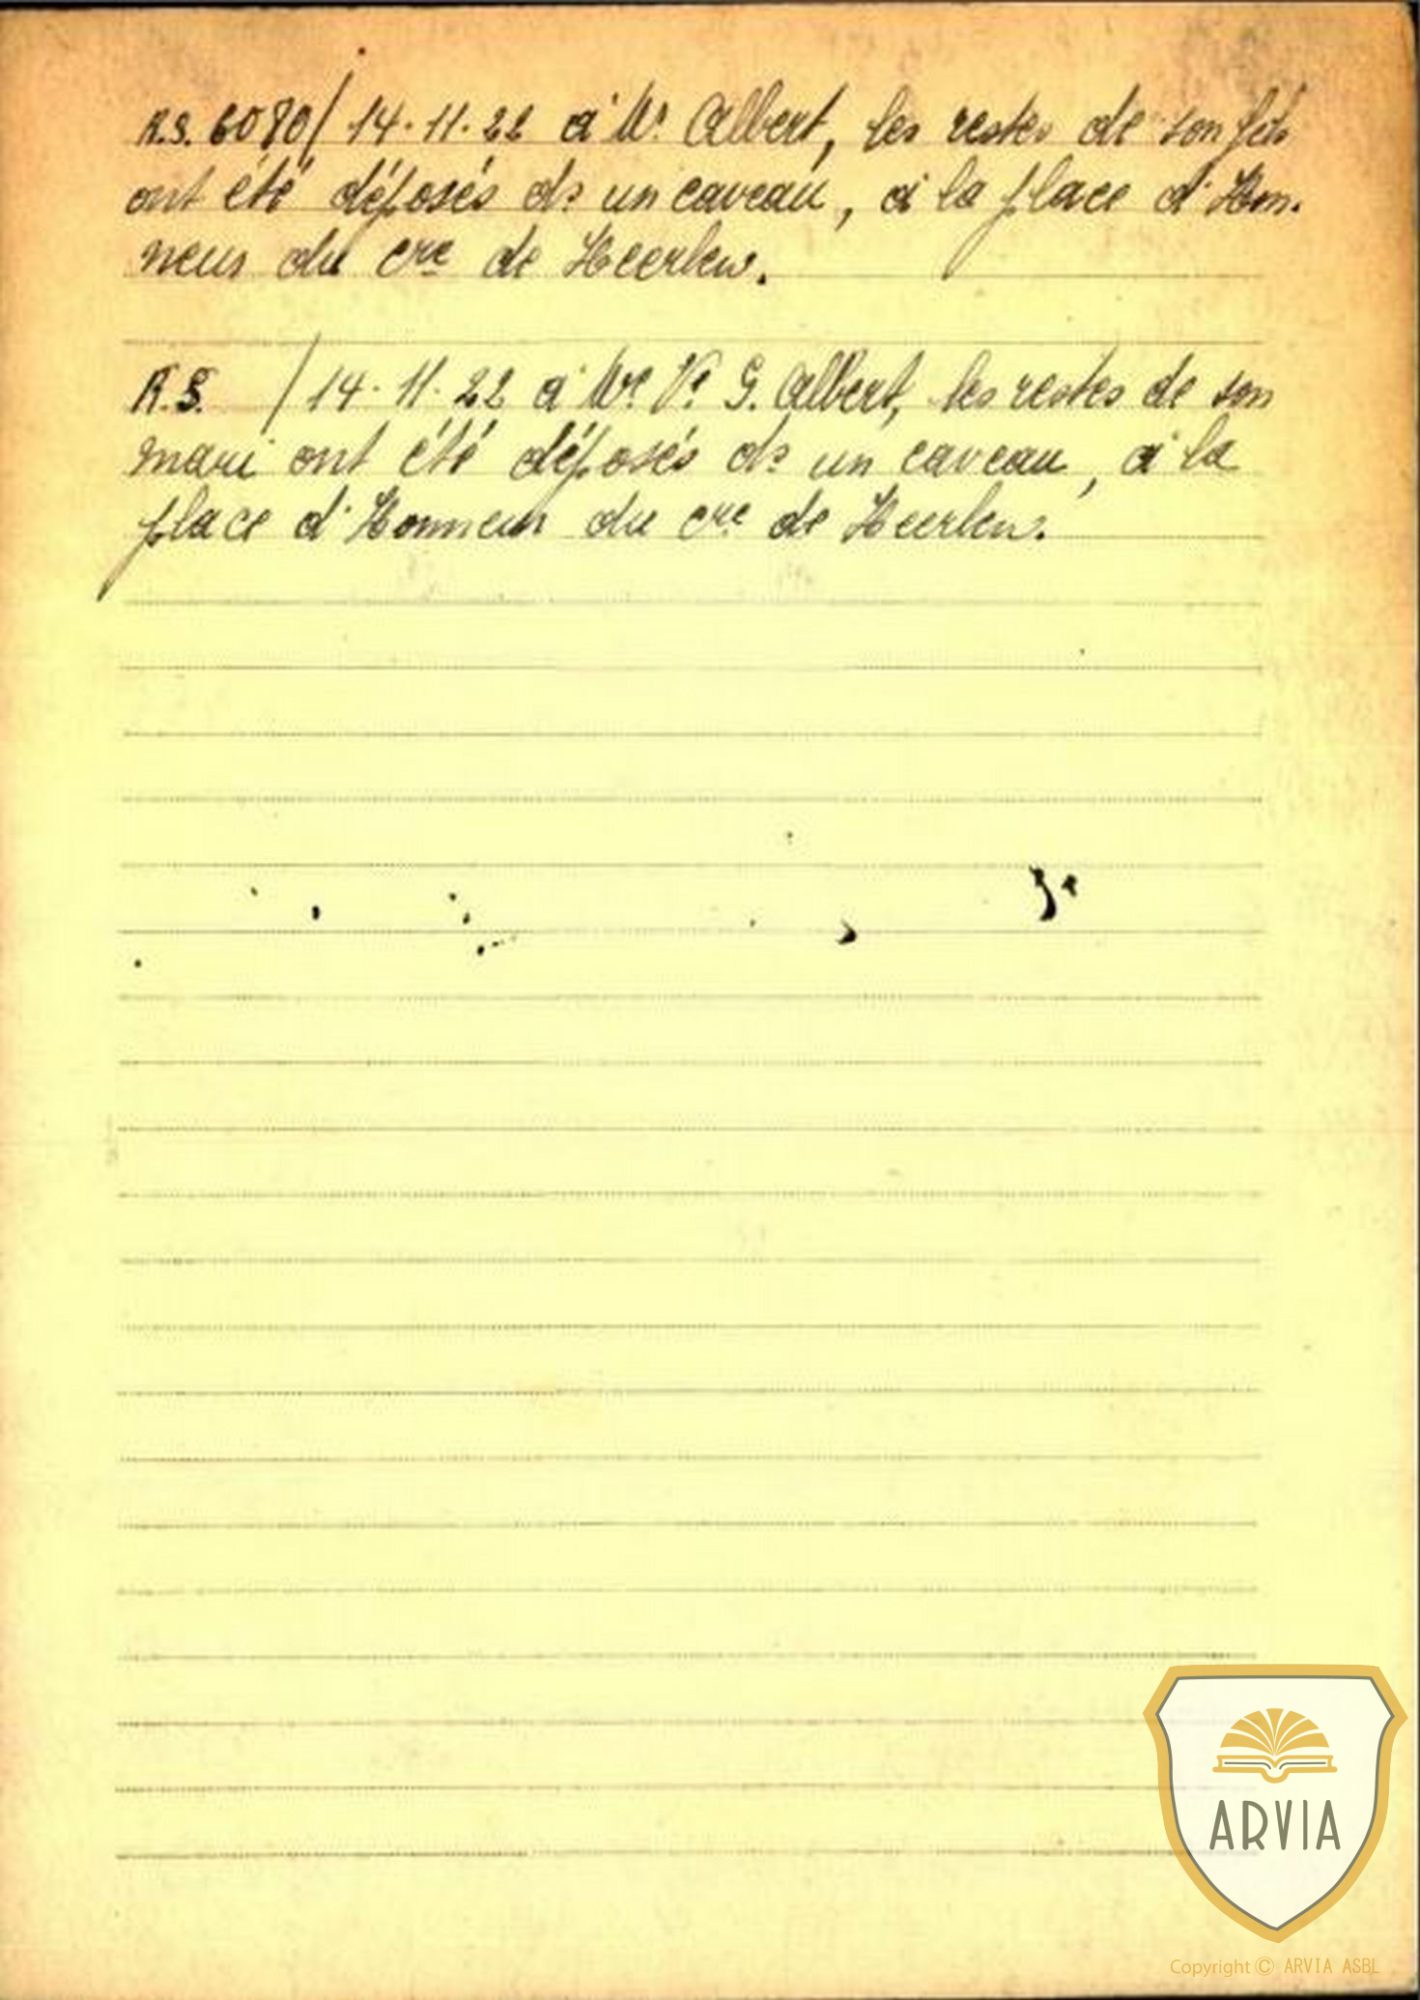 R.S. 6080/ 14-11-22 à Mr Albert, les restes de son fils
ont été déposés ds un caveau, à la place d'Hon-
neur du cre de Heerlen.
R.S. / 14-11-22 à Me Ve G. Albert, les restes de son
mari ont été déposés ds un caveau, à la
place d'Honneur du cre de Heerlen.
ARVIA
Copyright © ARVIA ASBL